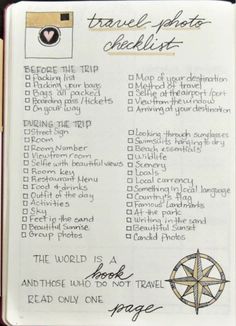 travel photo
checklist
BEFORE THE TRIP
Packing list
Packing your bags
Bags all packed
Boarding pass/tickets
On your way
Map of your destination
Method of travel
Selfie at the airport/port
View from the window
Arriving at your destination
DURING THE TRIP
Street Sign
Room
Room Number
View from room
Selfie with beautiful views
Room key
Restaurant Menu
Food + drinks
Outfit of the day
Activities
Sky
Feet in the sand
Beautiful Sunrise
Group photos
Looking through sunglasses
Swimsuits hanging to dry
Beach essentials
Wildlife
Scenery
Locals
Local currency
Something in local language
Country's flag
Famous Landmarks
At the park
Writing in the sand
Beautiful Sunset
Candid Photos
THE WORLD IS A
book
AND THOSE WHO DO NOT TRAVEL
READ ONLY ONE
page